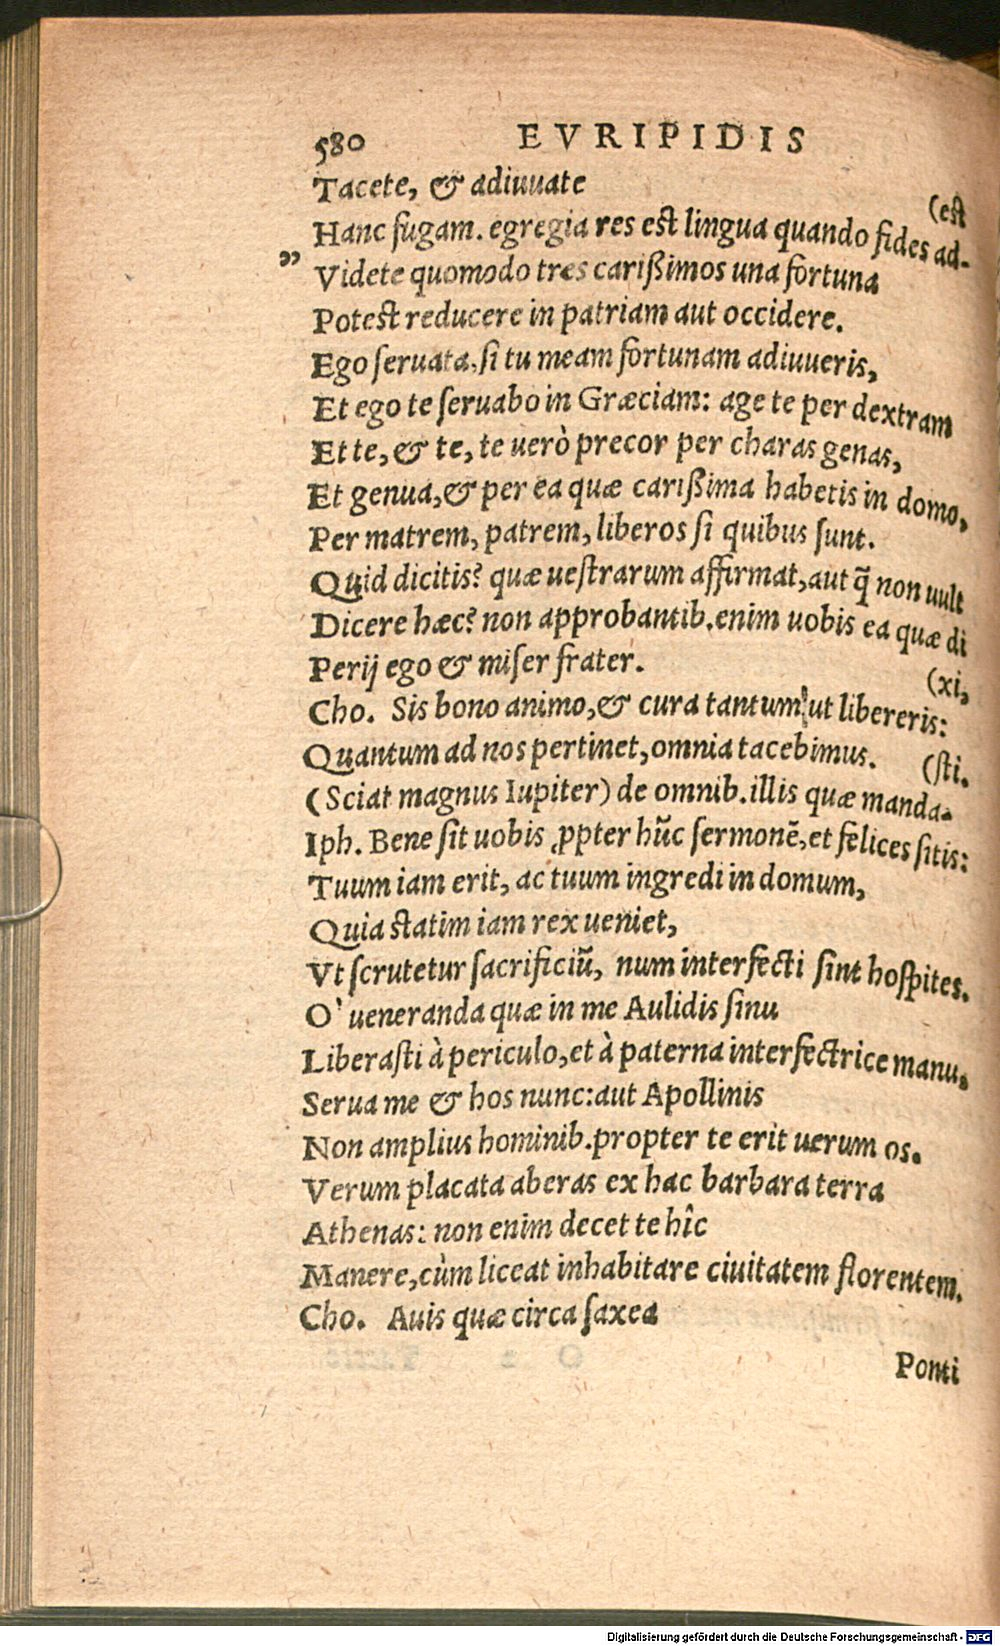 580 EVRIPIDIS
Tacete, & adiuuate
(est
Hanc fugam. egregia res est lingua quando fides ad-
„ Videte quomodo tres carißimos una fortuna
Potest reducere in patriam aut occidere.
Ego ſeruata, ſi tu meam fortunam adiuueris,
Et ego te ſeruabo in Græciam: age te per dextram
Et te, & te, te uerò precor per charas genas,
Et genua, & per ea quæ carißima habetis in domo,
Per matrem, patrem, liberos ſi quibus ſunt.
Quid dicitis? quæ ueſtrarum affirmat, aut q̃ non uult
Dicere hæc? non approbantib. enim uobis ea quæ di
Perij ego & miſer frater.
(xi,
Cho. Sis bono animo, & cura tantum ut libereris:
Quantum ad nos pertinet, omnia tacebimus.
(ſti.
(Sciat magnus Iupiter) de omnib. illis quæ manda-
Iph. Bene ſit uobis ꝓpter hũc ſermonẽ, et felices ſitis:
Tuum iam erit, ac tuum ingredi in domum,
Quia statim iam rex ueniet,
Vt ſcrutetur ſacrificiũ, num interfecti ſint hoſpites.
O' ueneranda quæ in me Aulidis ſinu
Liberaſti à periculo, et à paterna interfectrice manu,
Serua me & hos nunc: aut Apollinis
Non amplius hominib. propter te erit uerum os.
Verum placata aberas ex hac barbara terra
Athenas: non enim decet te hîc
Manere, cùm liceat inhabitare ciuitatem florentem.
Cho. Auis quæ circa ſaxea
Ponti
Digitalisierung gefördert durch die Deutsche Forschungsgemeinschaft - DFG